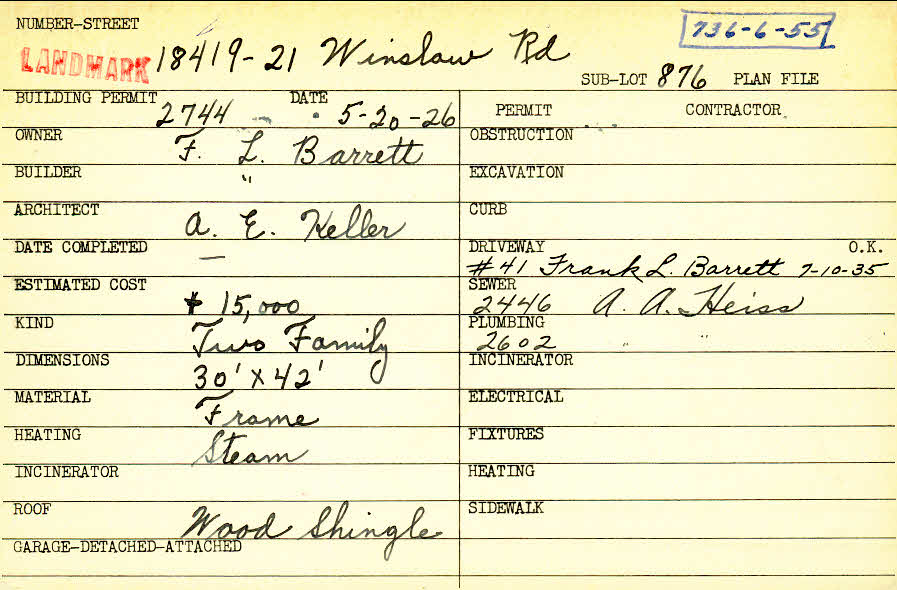 NUMBER-STREET
736-6-55
LANDMARK 18419-21 Winslow Rd
SUB-LOT 876 PLAN FILE
BUILDING PERMIT 2744 DATE 5-20-26
PERMIT CONTRACTOR
OWNER F. L. Barrett
OBSTRUCTION
BUILDER "
EXCAVATION
ARCHITECT A. E. Keller
CURB
DATE COMPLETED —
DRIVEWAY O.K.
#41 Frank L. Barrett 7-10-35
ESTIMATED COST $15,000
SEWER
2446 A. A. Heiss
KIND Two Family
PLUMBING
2602 " "
DIMENSIONS 30' X 42'
INCINERATOR
MATERIAL Frame
ELECTRICAL
HEATING Steam
FIXTURES
INCINERATOR
HEATING
ROOF Wood Shingle
SIDEWALK
GARAGE-DETACHED-ATTACHED